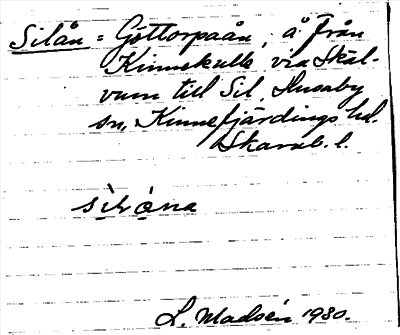 Silån = Göttorpaån, å från
Kinnekulle via Skäl-
vum till Sil. Husaby
sn, Kinnefjärdings hd.
Skarab. l.
L. Madsén 1930.